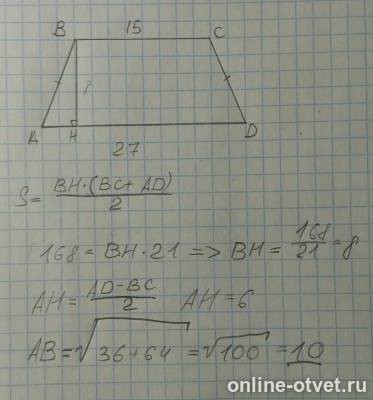 B 15 C
8
A H D
27
S = BH·(BC+AD)/2
168 = BH·21 => BH = 168/21 = 8
AH = AD-BC/2 AH = 6
AB = √36+64 = √100 = 10
online-otvet.ru